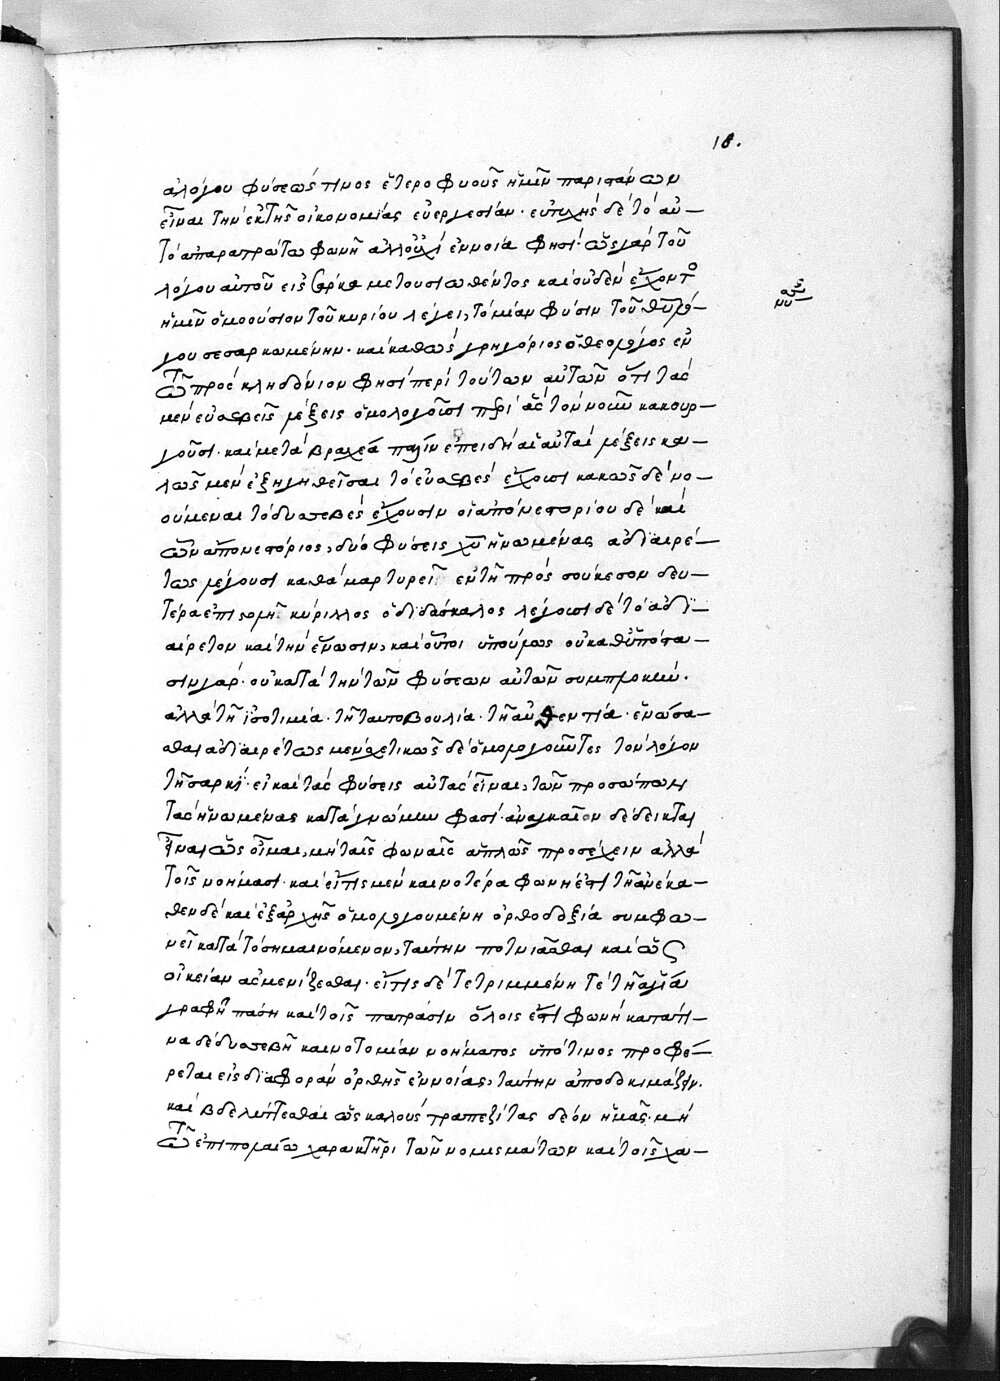 18.
ἀλόγου φύσεώς τινος ἑτεροφυοῦς ἡμῖν παριστάνων
εἶναι τὴν ἐκ τῆς οἰκονομίας εὐεργεσίαν· εὐτελὴς δὲ τὸ αὐ-
τὸ ἀπαραπρώτω φωνῇ ἀλλ' οὐχὶ ἐννοία φησί· ὡς γὰρ τοῦ
λόγου αὐτοῦ εἰς σάρκα μετουσιωθέντος καὶ οὐδὲν ἔχοντο
ἡμῖν ὁμοούσιον τοῦ κυρίου λέγει, τὸ μίαν φύσιν τοῦ θεοῦ λό-
γου σεσαρκωμένην· καὶ καθὼς γρηγόριος ὁ θεολόγος ἐν
τῶ πρὸς κληδόνιον φησὶ περὶ τούτων αὐτῶν ὅτι τὰς
μὲν εὐσεβεῖς λέξεις ὁμολογοῦσι περὶ ἃς τὸν νοῦν κακουρ-
γοῦσι· καὶ μετὰ βραχέα πάλιν ἐπειδὴ αἱ αὐταὶ λέξεις κα-
λῶς μὲν ἐξηγηθεῖσαι τὸ εὐσεβὲς ἔχουσι κακῶς δὲ νο-
ούμεναι τὸ δυσσεβὲς ἔχουσιν οἱ ἀπὸ νεστορίου δὲ καὶ
ὧν ἀπὸ νεστόριος, δύο φύσεις χυ ἡνωμένας ἀδιαιρέ-
τως λέγουσι καθὰ μαρτυρεῖ ἐν τῇ πρὸς σούκεσον δευ-
τέρα ἐπιστολῇ κύριλλος ὁ διδάσκαλος λέγουσι δὲ τὸ ἀδι-
αίρετον καὶ τὴν ἕνωσιν, καὶ οὗτοι ὑπούλως οὐ καθ' ὑπόστα-
σιν γάρ· οὐ κατὰ τὴν τῶν φύσεων αὐτῶν συμπλοκήν·
ἀλλὰ τῇ ἰσοτιμία· τῇ ταυτοβουλία· τῇ αὐθεντία· ἑνῶσ-
θαι ἀδιαιρέτως μὲν σχετικῶς δὲ ὁμολογοῦντες τὸν λόγον
τῇ σαρκί· εἰ καὶ τὰς φύσεις αὐτὰς εἶναι, τῶν προσώπων
τὰς ἡνωμένας κατὰ γνώμην φασί· ἀναγκαῖον δέδεικται
εἶναι ὡς οἶμαι, μὴ ταῖς φωναῖς ἁπλῶς προσέχειν ἀλλὰ
τοῖς νοήμασι· καὶ εἴ τις μὲν καινοτέρα φωνὴ ἐστὶ τῇ ἀνέκα-
θεν δὲ καὶ ἐξαρχῆς ὁμολογουμένη ὀρθοδοξία συμφω-
νεῖ κατὰ τὸ σημαινόμενον, ταύτην ποτνιᾶσθαι καὶ ὡς
οἰκείαν ἀσμενίζεσθαι· εἴ τις δὲ τετριμμένη τε τῇ ἁγία
γραφῇ πάση καὶ τοῖς πατράσιν ὅλοις ἐστὶ φωνὴ καπατί-
να δὲ δυσσεβῆ καινοτομίαν νοήματος ὑπό τινος προφέ-
ρεται εἰς διαφορὰν ὀρθῆς ἐννοίας, ταύτην ἀποδοκιμάζειν.
καὶ βδελύττεσθαι ὡς καλοὺς τραπεζίτας δέον ἡμᾶς· μὴ
τῶ ἐπιπολαίω χαρακτῆρι τῶν νομισμάτων καὶ τοῖς χα-